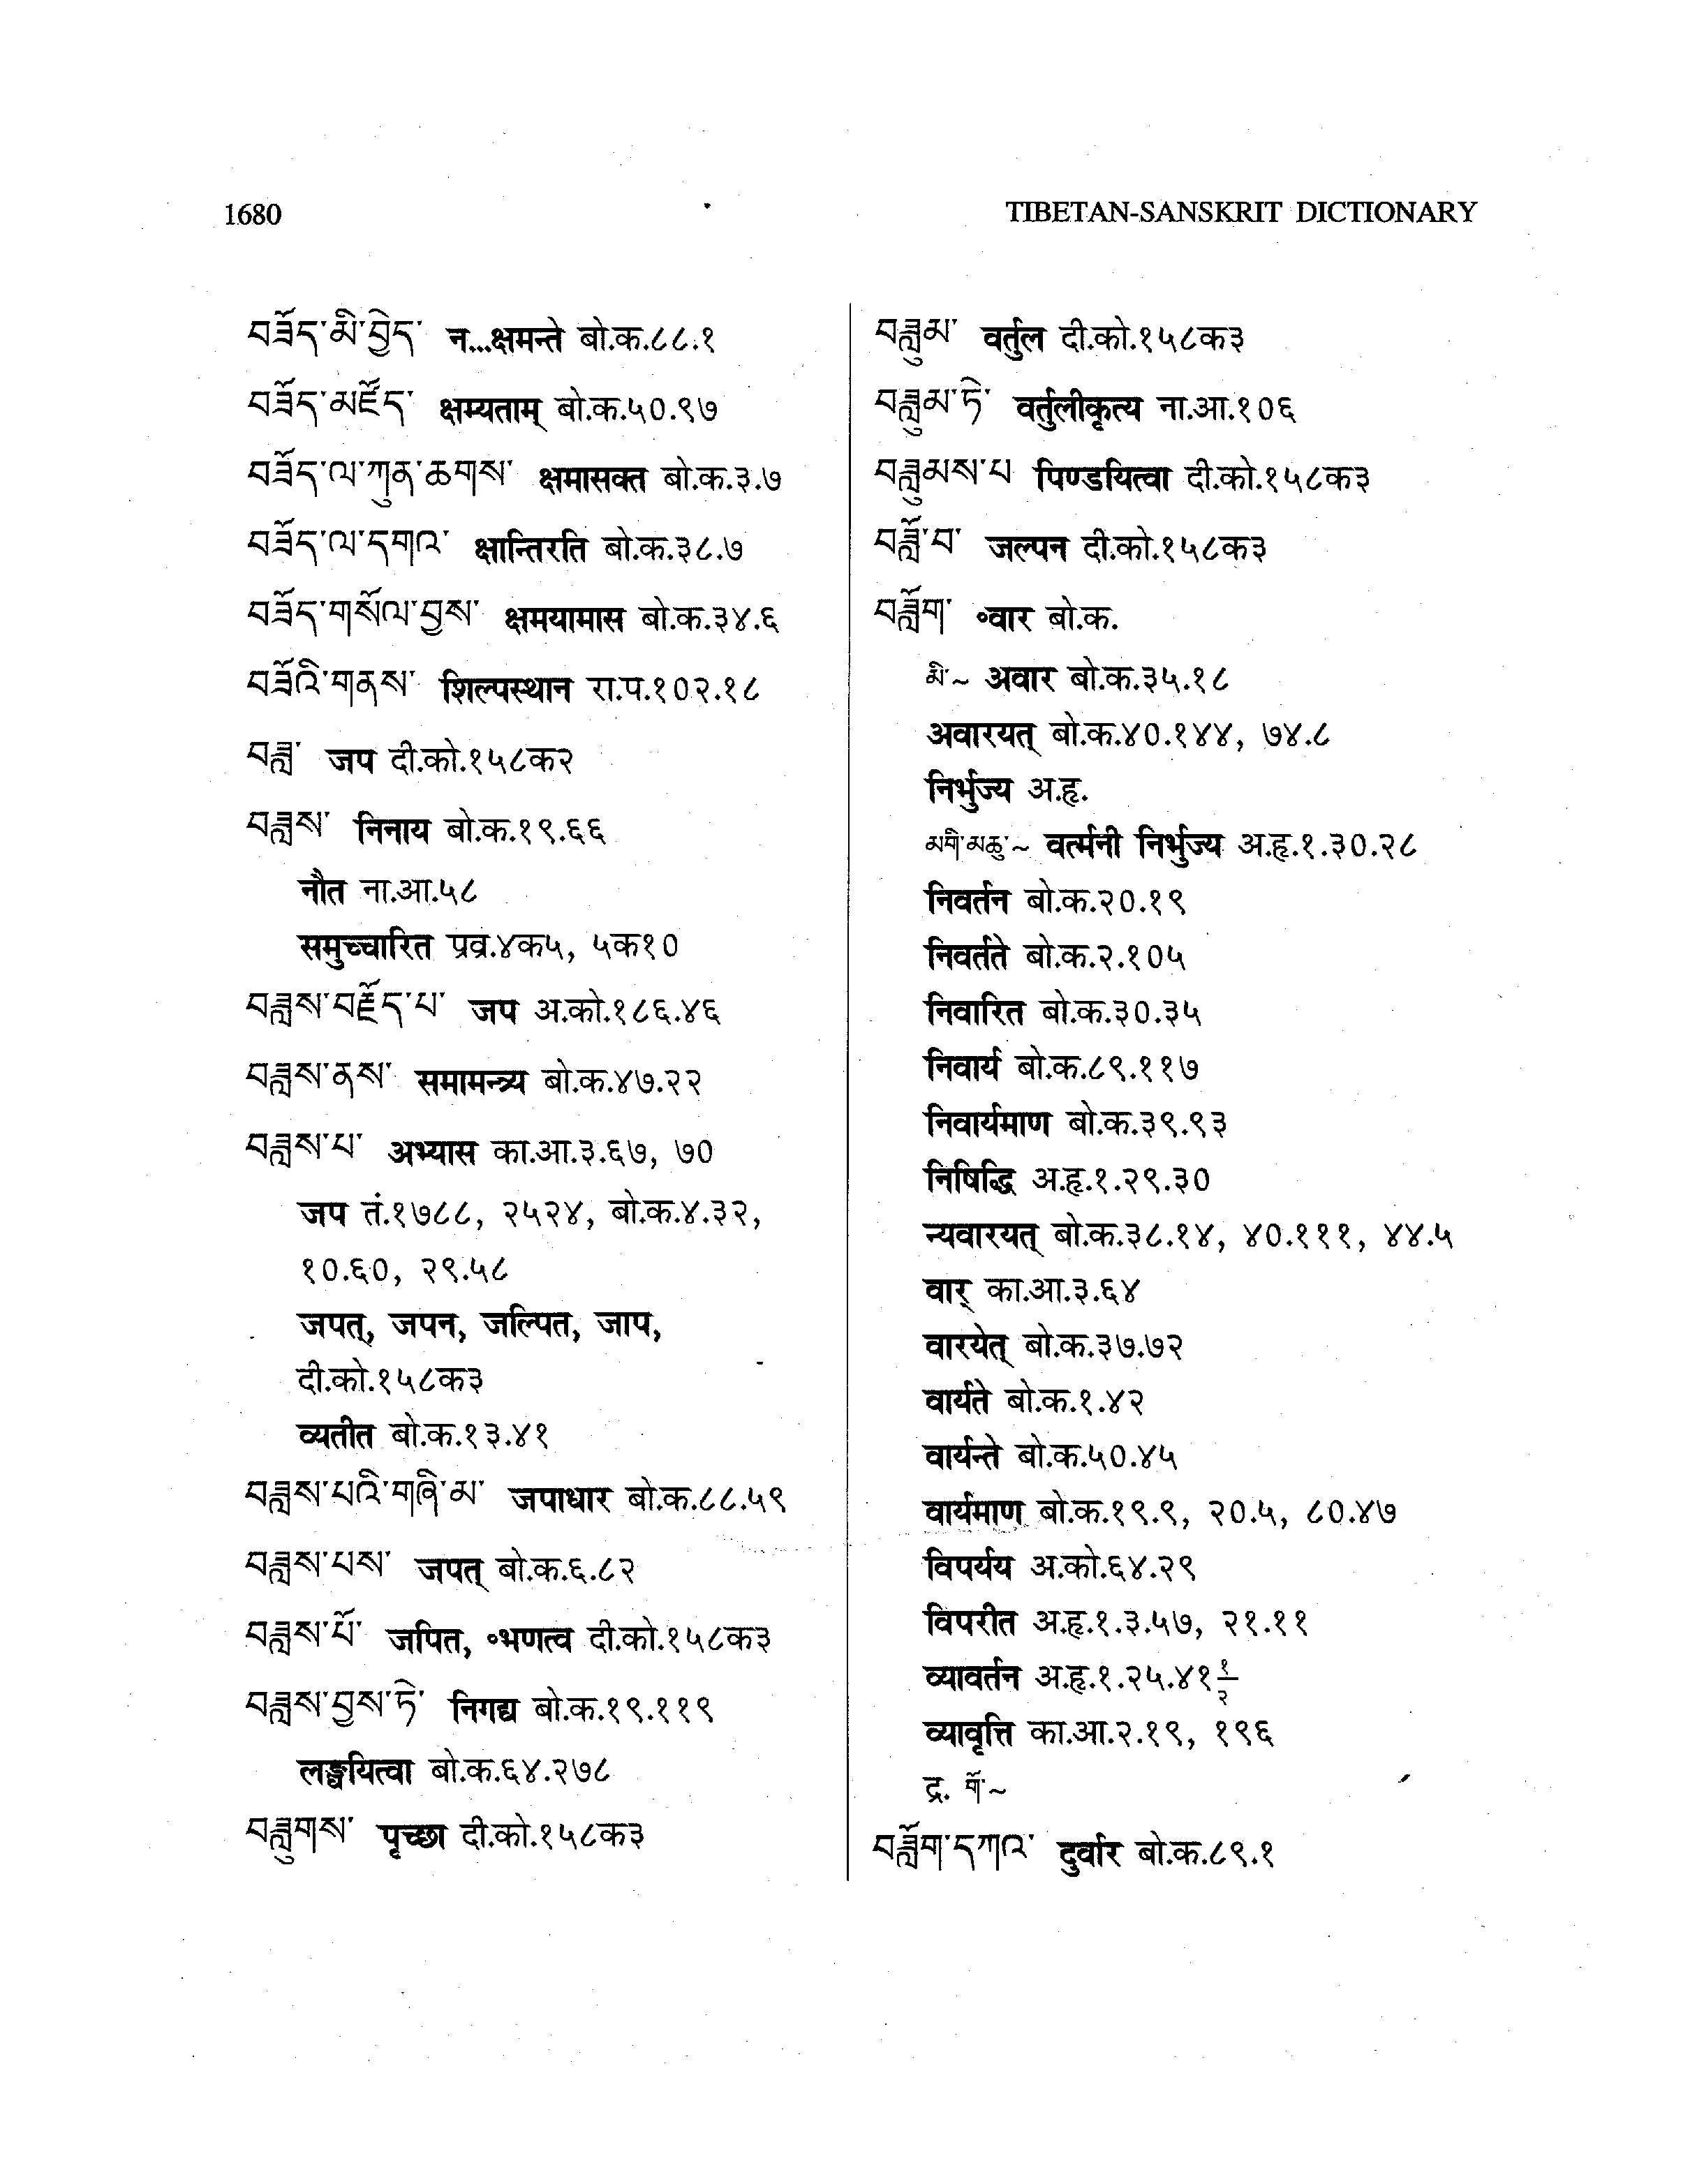 1680
TIBETAN-SANSKRIT DICTIONARY
བཟོད་མི་བྱེད་ न...क्षमन्ते बो.क.८८.१
བཟོད་མཛོད་ क्षम्यताम् बो.क.५०.९७
བཟོད་ལ་ཀུན་ཆགས་ क्षमासक्त बो.क.३.७
བཟོད་ལ་དགའ་ क्षान्तिरति बो.क.३८.७
བཟོད་གསོལ་བྱས་ क्षमयामास बो.क.३४.६
བཟོའི་གནས་ शिल्पस्थान रा.प.१०२.१८
བཟླ་ जप दी.को.१५८क२
བཟླས་ निनाय बो.क.१९.६६
नौत ना.आ.५८
समुच्चारित प्रव्र.४क५, ५क१०
བཟླས་བརྗོད་པ་ जप अ.को.१८६.४६
བཟླས་ནས་ समामन्त्र्य बो.क.४७.२२
བཟླས་པ་ अभ्यास का.आ.३.६७, ७०
जप तं.१७८८, २५२४, बो.क.४.३२,
१०.६०, २९.५८
जपत्, जपन, जल्पित, जाप,
दी.को.१५८क३
व्यतीत बो.क.१३.४१
བཟླས་པའི་གཞི་མ་ जपाधार बो.क.८८.५९
བཟླས་པས་ जपत् बो.क.६.८२
བཟླས་པོ་ जपित, ॰भणत्व दी.को.१५८क३
བཟླས་བྱས་ཏེ་ निगद्य बो.क.१९.११९
लङ्घयित्वा बो.क.६४.२७८
བཟླུགས་ पृच्छा दी.को.१५८क३
བཟླུམ་ वर्तुल दी.को.१५८क३
བཟླུམ་ཏེ་ वर्तुलीकृत्य ना.आ.१०६
བཟླུམས་པ पिण्डयित्वा दी.को.१५८क३
བཟློ་བ་ जल्पन दी.को.१५८क३
བཟློག་ ॰वार बो.क.
མི་~ अवार बो.क.३५.१८
अवारयत् बो.क.४०.१४४, ७४.८
निर्भुज्य अ.हृ.
མགི་མཆུ་~ वर्त्मनी निर्भुज्य अ.हृ.१.३०.२८
निवर्तन बो.क.२०.१९
निवर्तते बो.क.२.१०५
निवारित बो.क.३०.३५
निवार्य बो.क.८९.११७
निवार्यमाण बो.क.३९.९३
निषिद्धि अ.हृ.१.२९.३०
न्यवारयत् बो.क.३८.१४, ४०.१११, ४४.५
वार् का.आ.३.६४
वारयेत् बो.क.३७.७२
वार्यते बो.क.१.४२
वार्यन्ते बो.क.५०.४५
वार्यमाण बो.क.१९.९, २०.५, ८०.४७
विपर्यय अ.को.६४.२९
विपरीत अ.हृ.१.३.५७, २१.११
व्यावर्तन अ.हृ.१.२५.४१ १/२
व्यावृत्ति का.आ.२.१९, १९६
द्र. གོ་~
བཟློག་དཀའ་ दुर्वार बो.क.८९.१